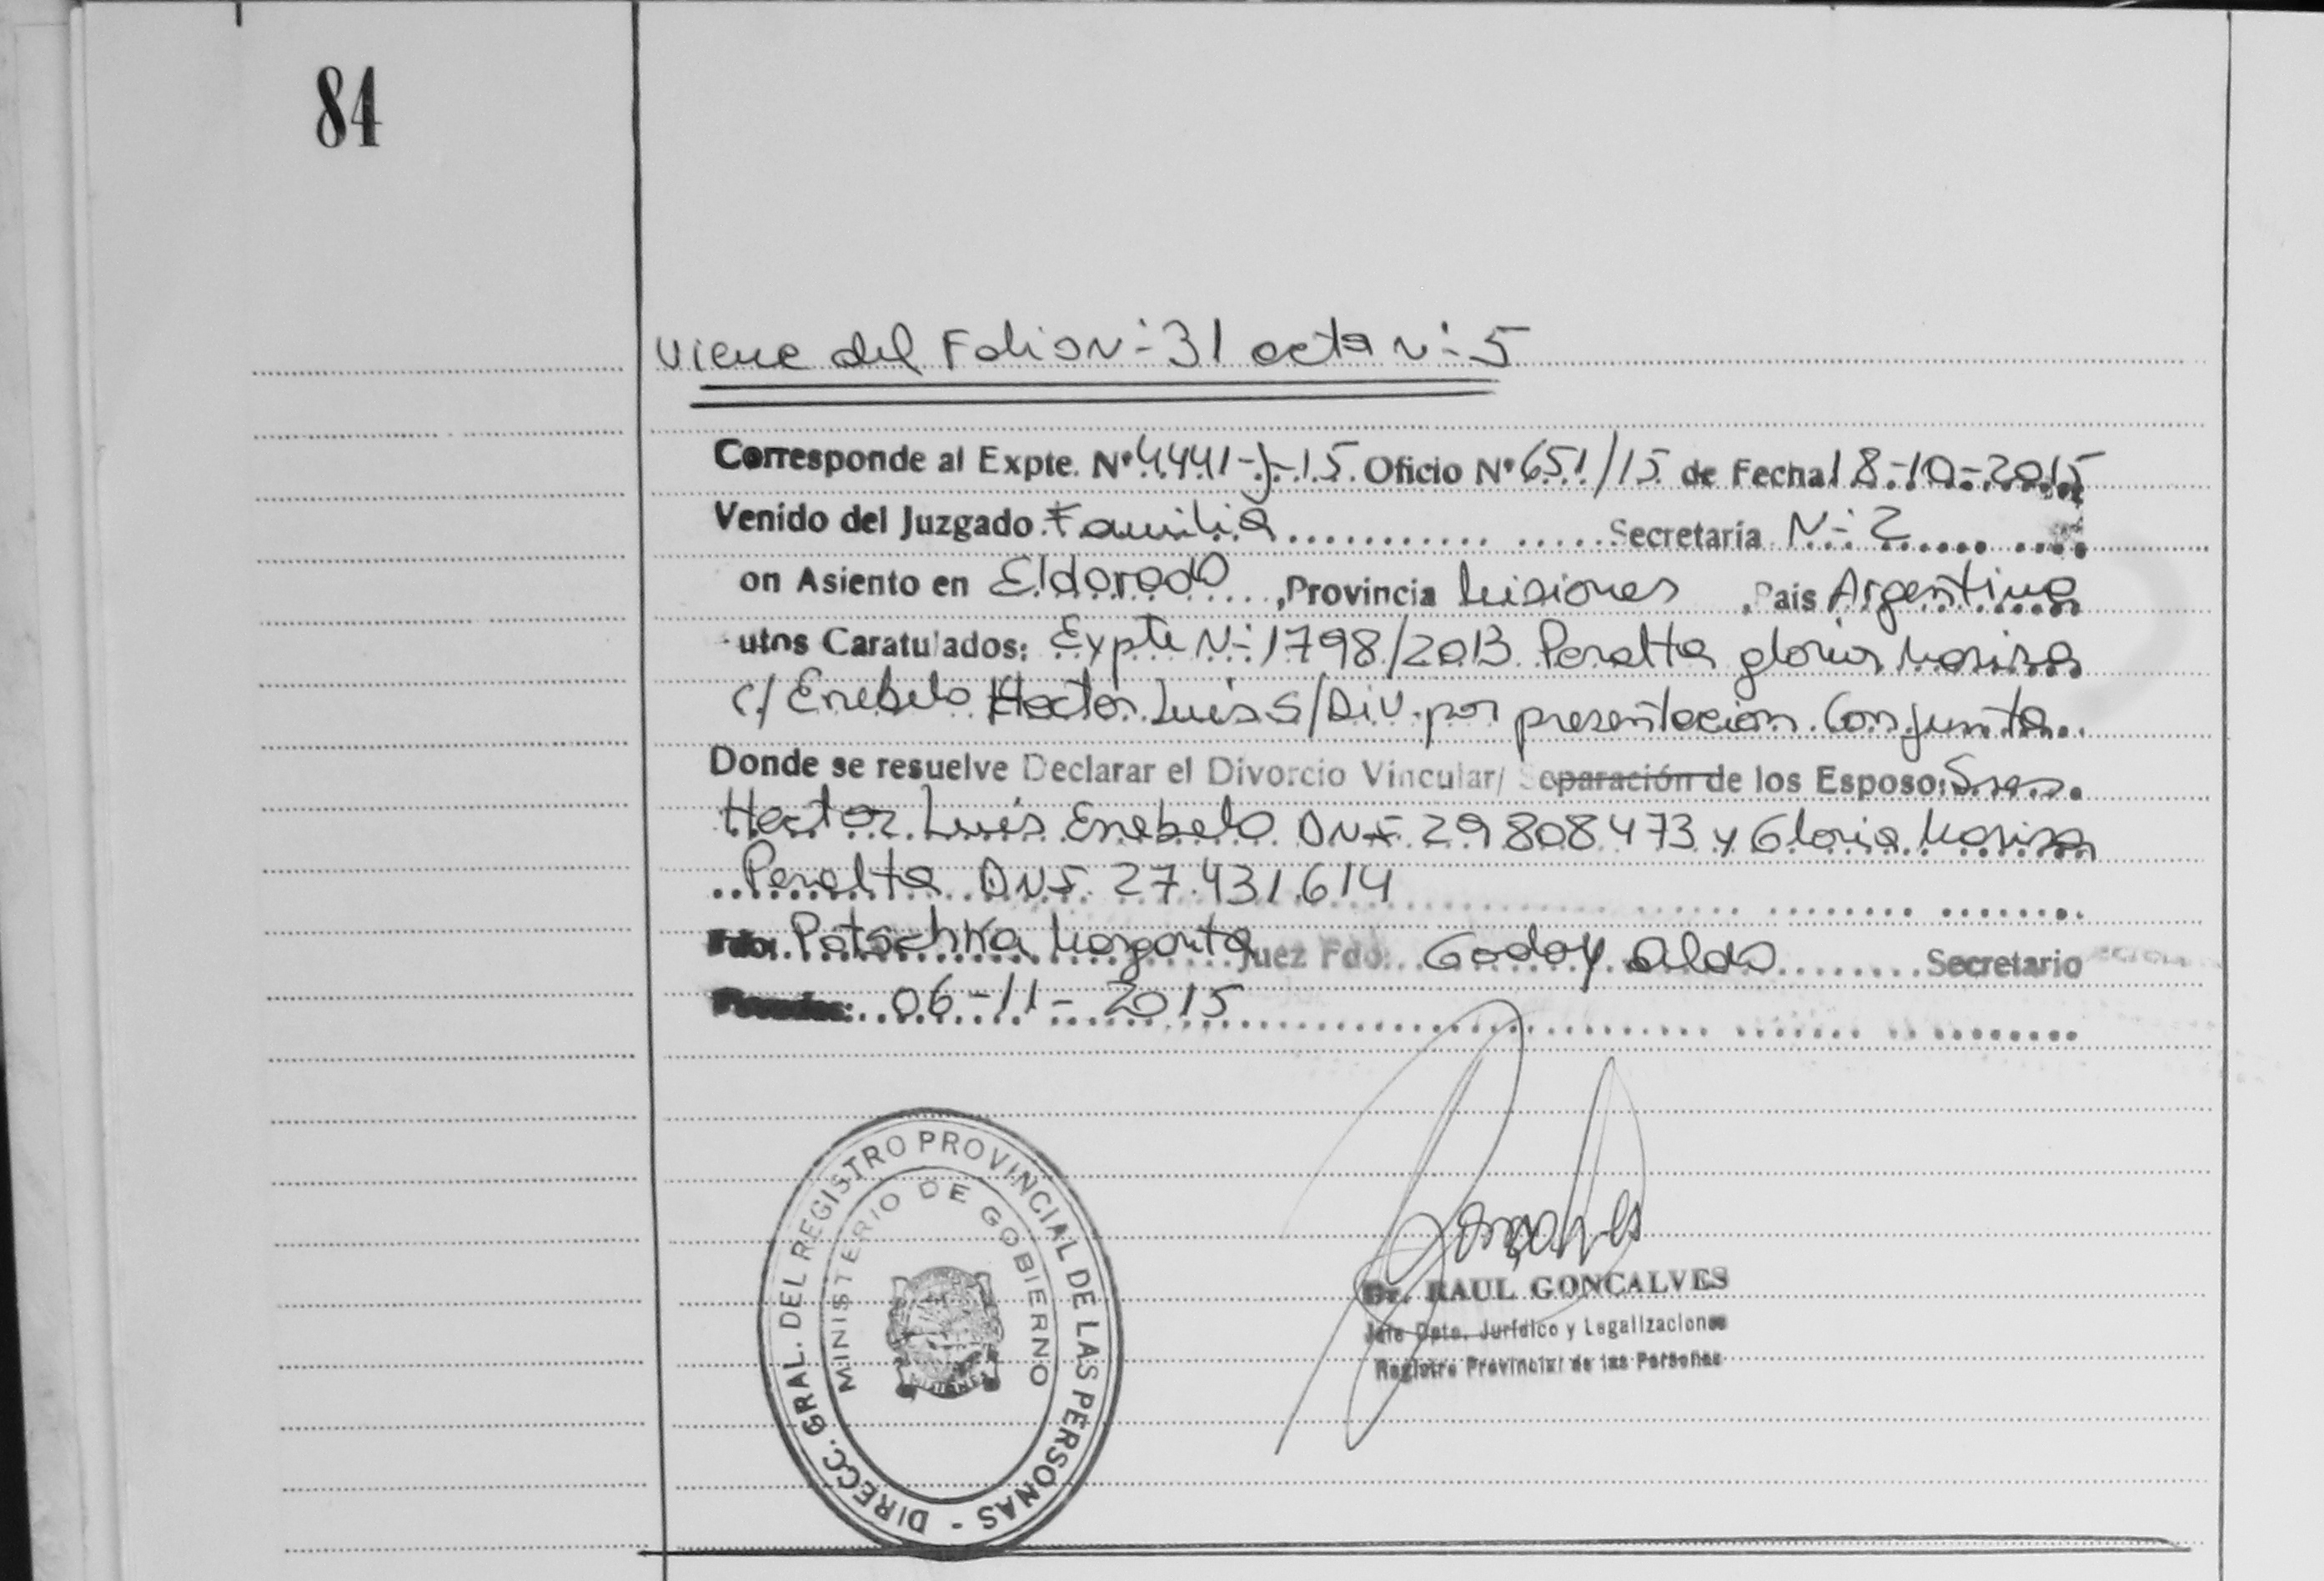 84
Viene del Folio Nº 31 acta Nº 5
Corresponde al Expte. Nº 4441-J-15 Oficio Nº 651/15 de Fecha 18-10-2015
Venido del Juzgado Familia Secretaría Nº 2
on Asiento en Eldorado, Provincia Misiones, Pais Argentina
utos Caratulados: Expte Nº 1798/2013 Peralta gloria Marisa
c/ Enebelo Hector Luis S/Div. por presentación Conjunta.
Donde se resuelve Declarar el Divorcio Vincular/ Separación de los Esposo: Sres.
Hector Luis Enebelo DNI 29 808 473 y Gloria Marisa
Peralta DNI 27.431.614
Fdo: Potschka Margarita Juez Fdo: Godoy Aldo Secretario
Posadas: 06-11-2015
DIRECC. GRAL. DEL REGISTRO PROVINCIAL DE LAS PERSONAS -
MINISTERIO DE GOBIERNO
MISIONES
Goncalves
Dr. RAUL GONCALVES
Jefe Dpto. Jurídico y Legalizaciones
Registro Provincial de las Personas